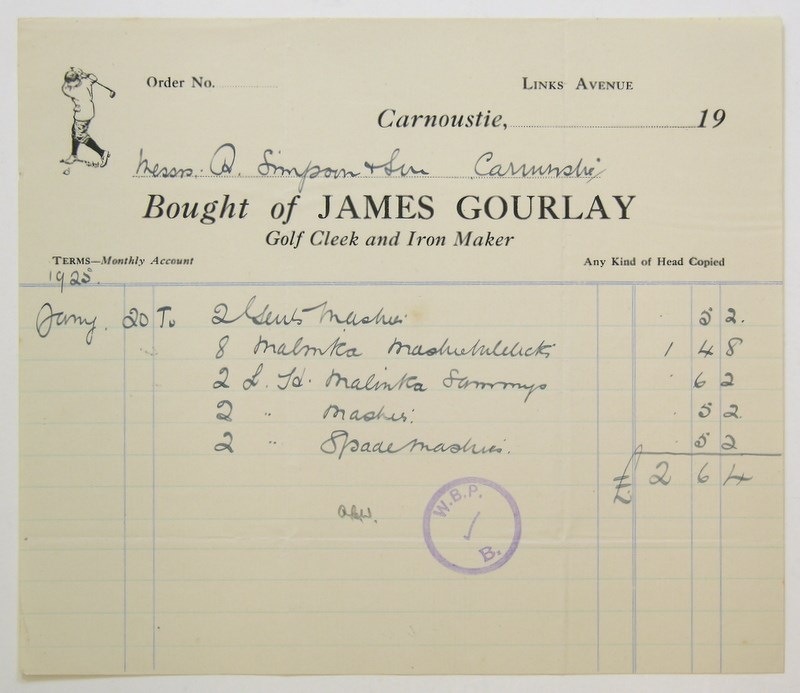 Order No.
LINKS AVENUE
Carnoustie, 19
Messrs. R. Simpson & Son Carnoustie
Bought of JAMES GOURLAY
Golf Cleek and Iron Maker
TERMS—Monthly Account
Any Kind of Head Copied
1925.
Jany. 20 To 2 Gents Mashies 5 2.
8 Malinka Mashie Niblicks 1 4 8
2 L. H. Malinka Sammys 6 2
2 " Mashies. 5 2
2 " Spade Mashies. 5 2
£ 2 6 4
W.B.P.
B.